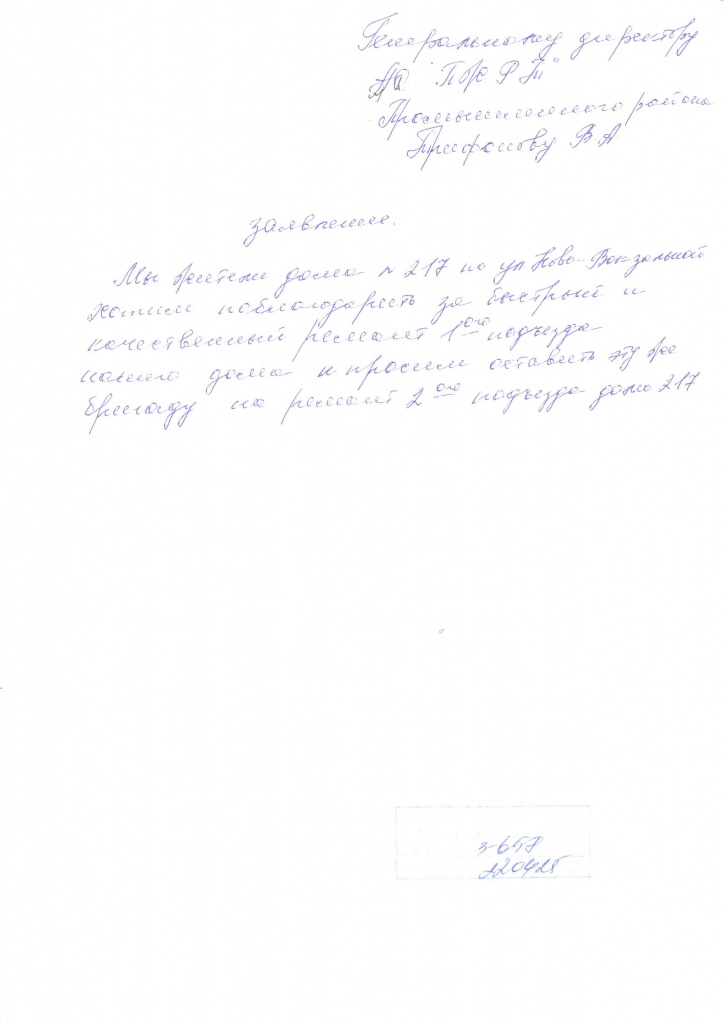 Генеральному директору
АО "ПЖРТ"
Промышленного района
Трифонову В.А
заявление.
Мы жители дома № 217 по ул Ново-Вокзальной
хотим поблагодарить за быстрый и
качественный ремонт 1ого подъезда
нашего дома и просим оставить эту же
бригаду на ремонт 2ого подъезда дома 217